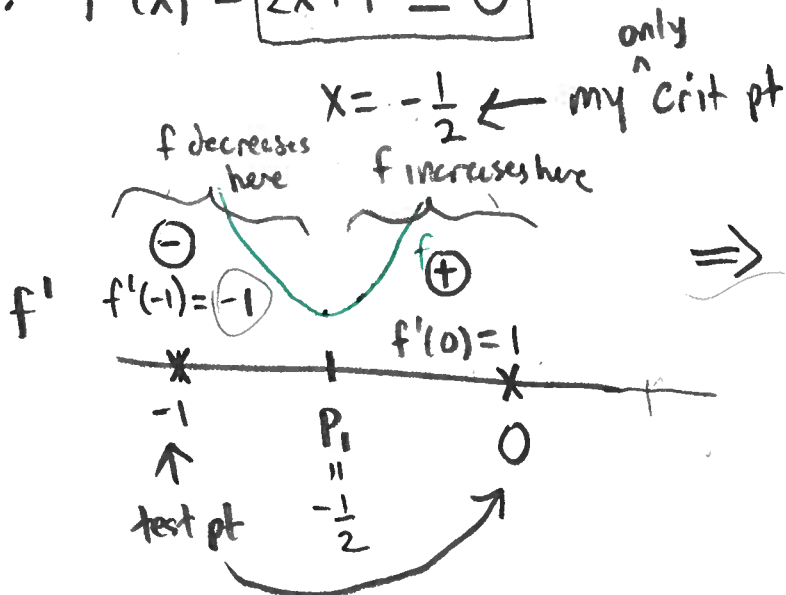 f'(x) = 2x+1 = 0
only
x = -1/2 ← my ^ crit pt
f decreases here
f increases here
⊖
f
⊕
⇒
f' f'(-1) = -1
f'(0) = 1
-1
P₁
0
↑
=
test pt
-1/2